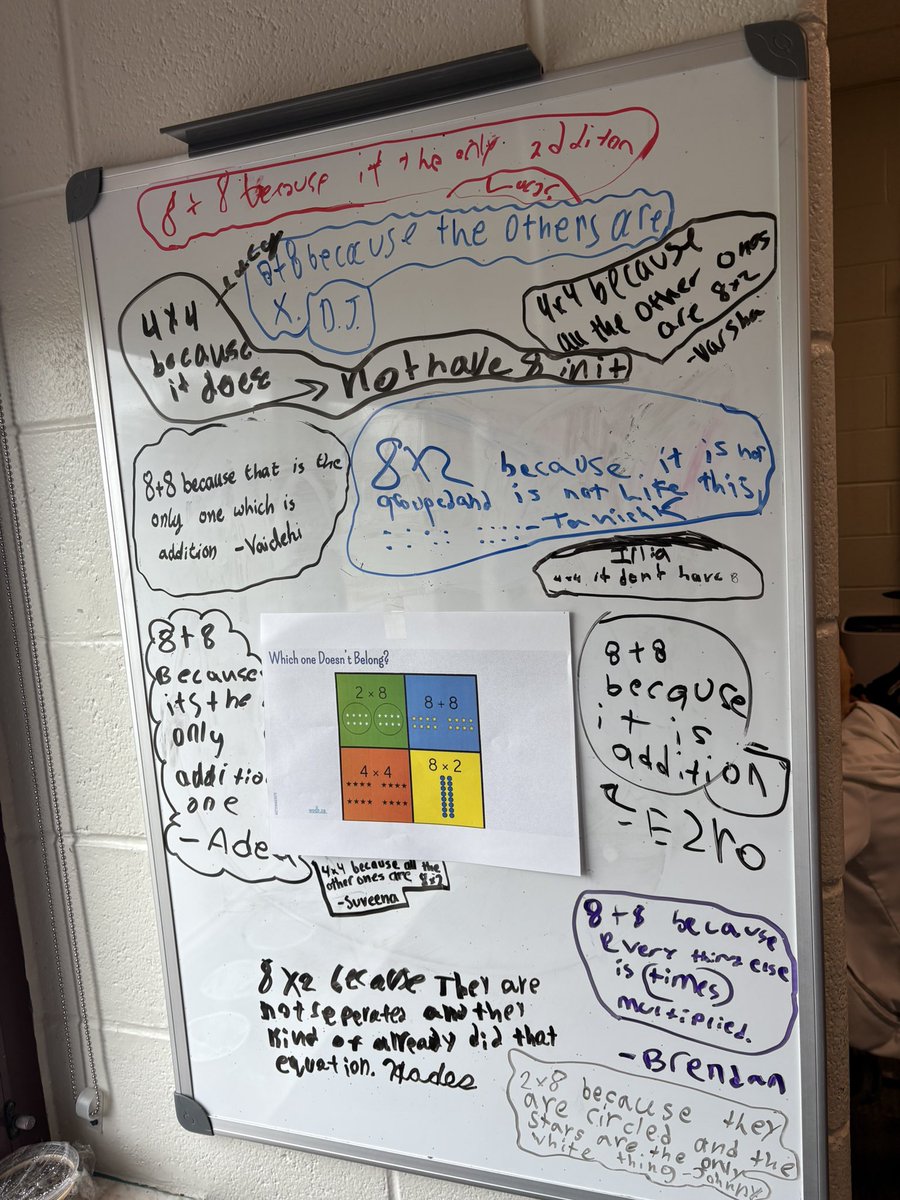 8+8 because it the only additon
8+8 because the others are
X. D.J.
4x4 because
all the other ones
are 8x2
-Varsha
4x4
because
it does → not have 8 in it
8+8 because that is the
only one which is
addition -Vaidehi
8x2 because it is not
grouped and is not like this
-Tanishk
Illia
4x4 it dont have 8
8+8
Because
its the
only
additio
one
-Aden
Which one Doesn't Belong?
2 × 8
8 + 8
4 × 4
8 × 2
8+8
because
it is
addition
4x4 because all the
other ones are 8x2
-Suveena
8+8 because
every thing else
is times
multiplied.
-Brendan
8x2 because They are
not seperates and they
kind of already did that
equation. Hades
2x8 because they
are circled and the
stars are the only
white thing -Johnny